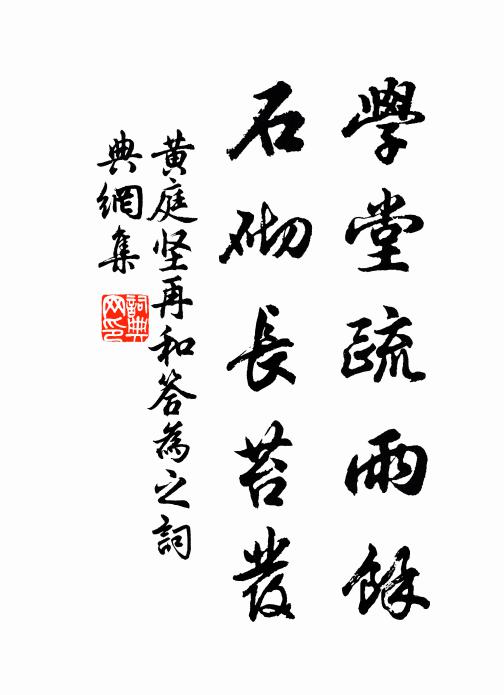 學堂疏雨餘
石砌長苔發
黄庭坚再和答為之詞
典網集
詞典
网印